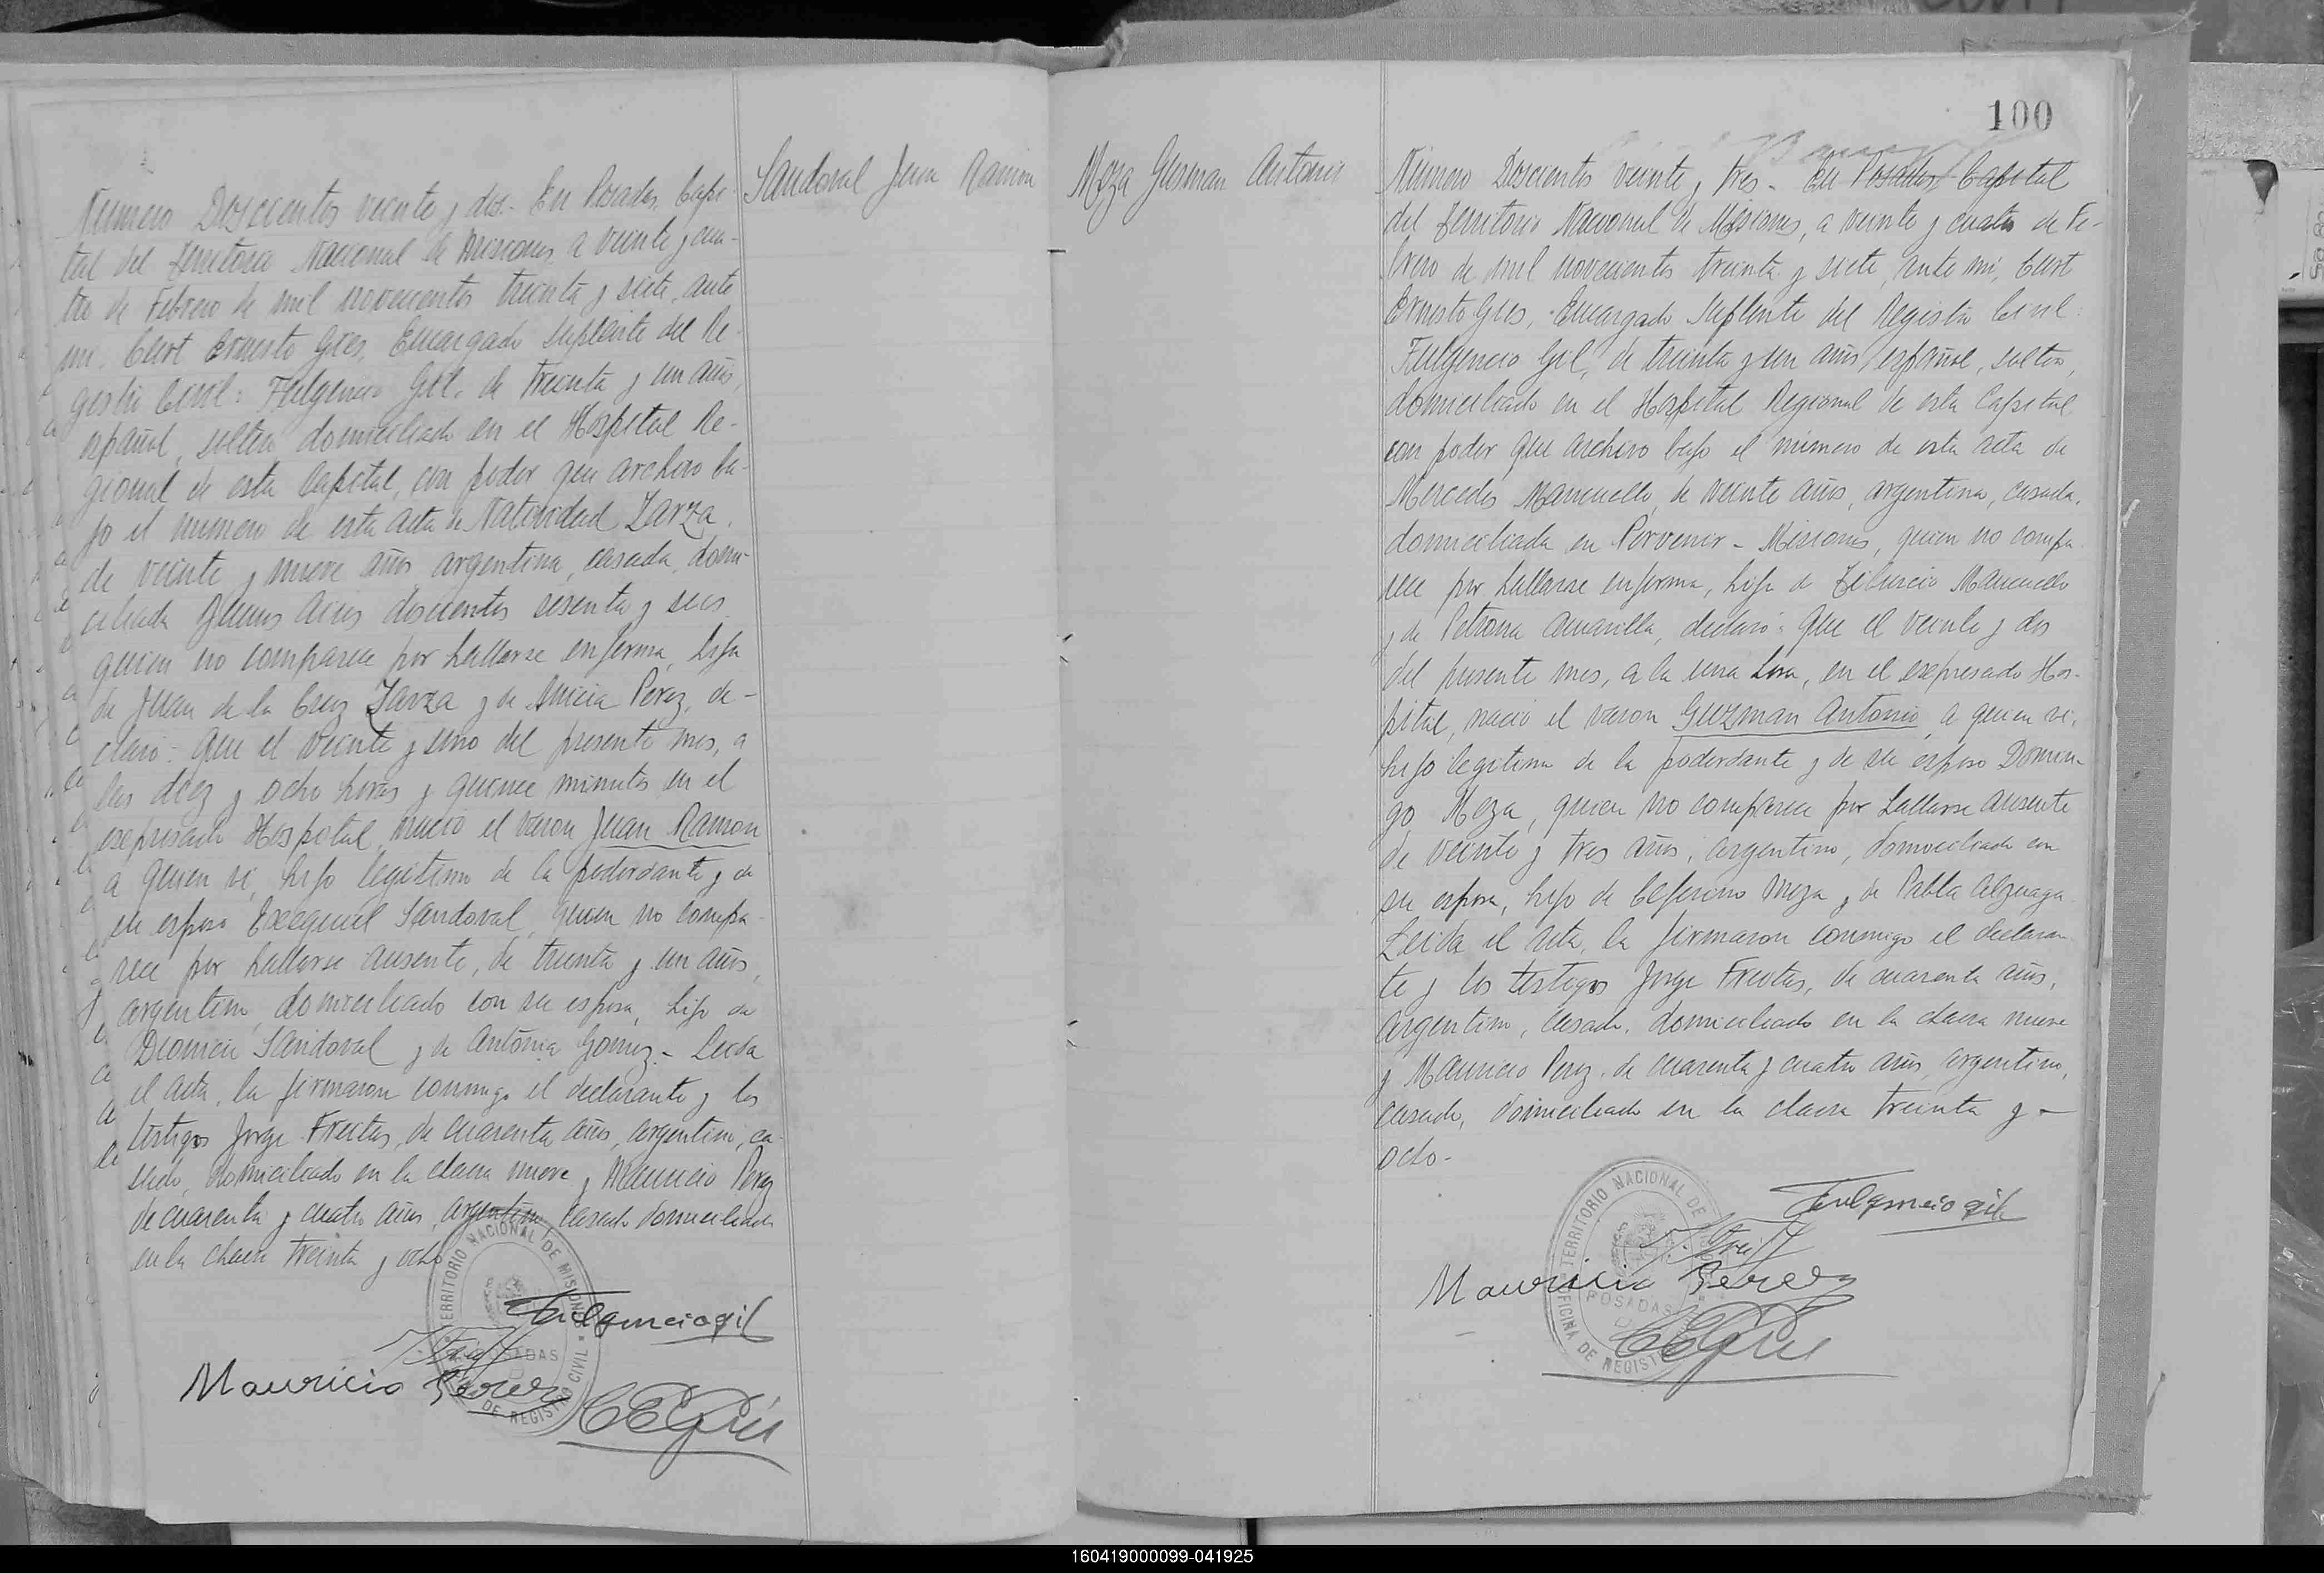 Sandoval Juan Ramon
Número Doscientos veinte y dos.- En Posadas, Capi-
tal del Territorio Nacional de Misiones, a veinte y cua-
tro de Febrero de mil novecientos treinta y siete, ante
mi, Curt Ernesto Gries, Encargado Suplente del Re-
gistro Civil: Fulgencio Gil, de treinta y un años,
español, soltero domiciliado en el Hospital Re-
gional de esta Capital, con poder que archivo ba-
jo el número de esta acta de Natividad Zarza,
de veinte y nueve años, argentina, casada, domi-
ciliada Buenos Aires doscientos sesenta y seis
quien no comparece por hallarse enferma, hija
de Juan de la Cruz Zarza y de Anicia Perez, de-
claró: Que el veinte y uno del presente mes, a
las diez y ocho horas y quince minutos en el
expresado Hospital, nació el varon Juan Ramon
a quien vi, hijo legitimo de la poderdante y de
su esposo Exequiel Sandoval, quien no compa-
rece por hallarse ausente, de treinta y un años,
argentino, domiciliado con su esposa, hijo de
Dionicio Sandoval y de Antonia Gomez.- Leida
el acta, la firmaron conmigo el declarante y los
testigos Jorge Freitas, de cuarenta años, argentino, ca-
sado, domiciliado en la chacra nueve y Mauricio Perez
de cuarenta y cuatro años, argentino, casado domiciliado
en la chacra treinta y ocho
TERRITORIO NACIONAL DE MISIONES
POSADAS
DE REGISTRO CIVIL
Fulgencio gil
Mauricio Perez
CEGries
100
Meza Gusman Antonio
Número Doscientos veinte y tres.- En Posadas, Capital
del Territorio Nacional de Misiones, a veinte y cuatro de Fe-
brero de mil novecientos treinta y siete, ante mi, Curt
Ernesto Gries, Encargado Suplente del Registro Civil:
Fulgencio Gil, de treinta y un años, español, soltero,
domiciliado en el Hospital Regional de esta Capital
con poder que archivo bajo el número de esta acta de
Mercedes Mancuello, de veinte años, argentina, casada,
domiciliada en Porvenir - Misiones, quien no compa-
rece por hallarse enferma, hija de Tiburcio Mancuello
y de Petrona Amarilla, declaró: Que el veinte y dos
del presente mes, a la una hora, en el expresado Hos-
pital, nació el varon Guzman Antonio, a quien vi,
hijo legitimo de la poderdante y de su esposo Domin-
go Meza, quien no comparece por hallarse ausente
de veinte y tres años, argentino, domiciliado con
su esposa, hijo de Ceferino Meza y de Pabla
Leida el acta, la firmaron conmigo el declaran-
te y los testigos Jorge Freitas, de cuarenta años,
argentino, casado, domiciliado en la chacra nueve
y Mauricio Perez, de cuarenta y cuatro años, argentino,
casado, domiciliado en la chacra treinta y -
ocho.-
TERRITORIO NACIONAL DE
POSADAS
OFICINA DE REGISTRO
Fulgencio gil
Mauricio Perez
CEGries
160419000099-041925